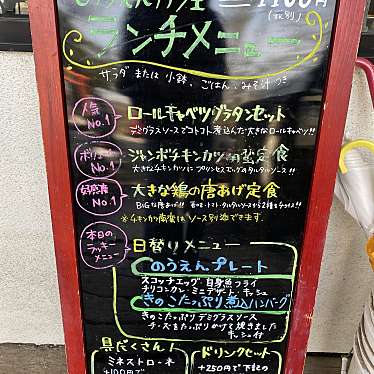 のうえんカフェ 1100円
(税別)
ランチメニュー
サラダ または 小鉢、ごはん、みそ汁つき
人気No.1
ロールキャベツグラタンセット
デミグラスソースでコトコト煮込んだ大きなロールキャベツ!!
ボリュームNo.1
ジャンボチキンカツ南蛮定食
大きなチキンカツにプリンセスエッグのタルタルソース!!
好感度No.1
大きな鶏の唐あげ定食
BIGな唐あげ!!
※チキンカツ南蛮はソース別添できます。
本日のラッキーメニュー
日替りメニュー
のうえんプレート
スコッチエッグ 白身魚フライ
チリコンクレ ミニデザート キッシュ
きのこたっぷり煮込ハンバーグ
きのこたっぷり デミグラスソース
チーズをたっぷりかけて焼きました
キッシュ付
具だくさん!
ミネストローネ
+100円で
ドリンクセット
+250円で下記の